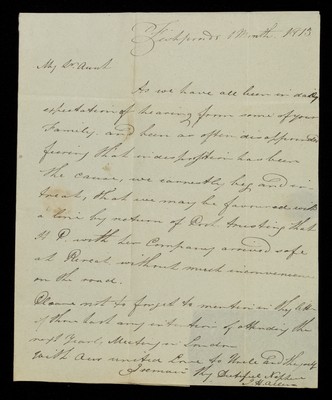 1 Month 1813
My Dr Aunt
As we have all been in daily
expectation of hearing from some of your
Family, and been as often disappointed
fearing that indisposition has been
the cause, we earnestly beg and in-
treat, that we may be favoured with
a line by return of Post trusting that
P. with her Company arrived safe
at without much inconvenience
on the road.
Please not to forget to mention in thy
if thou hast any intention of attending the
next Yearly Meeting in London
With our united Love to Uncle and thyself
I remain thy Dutiful Nephew